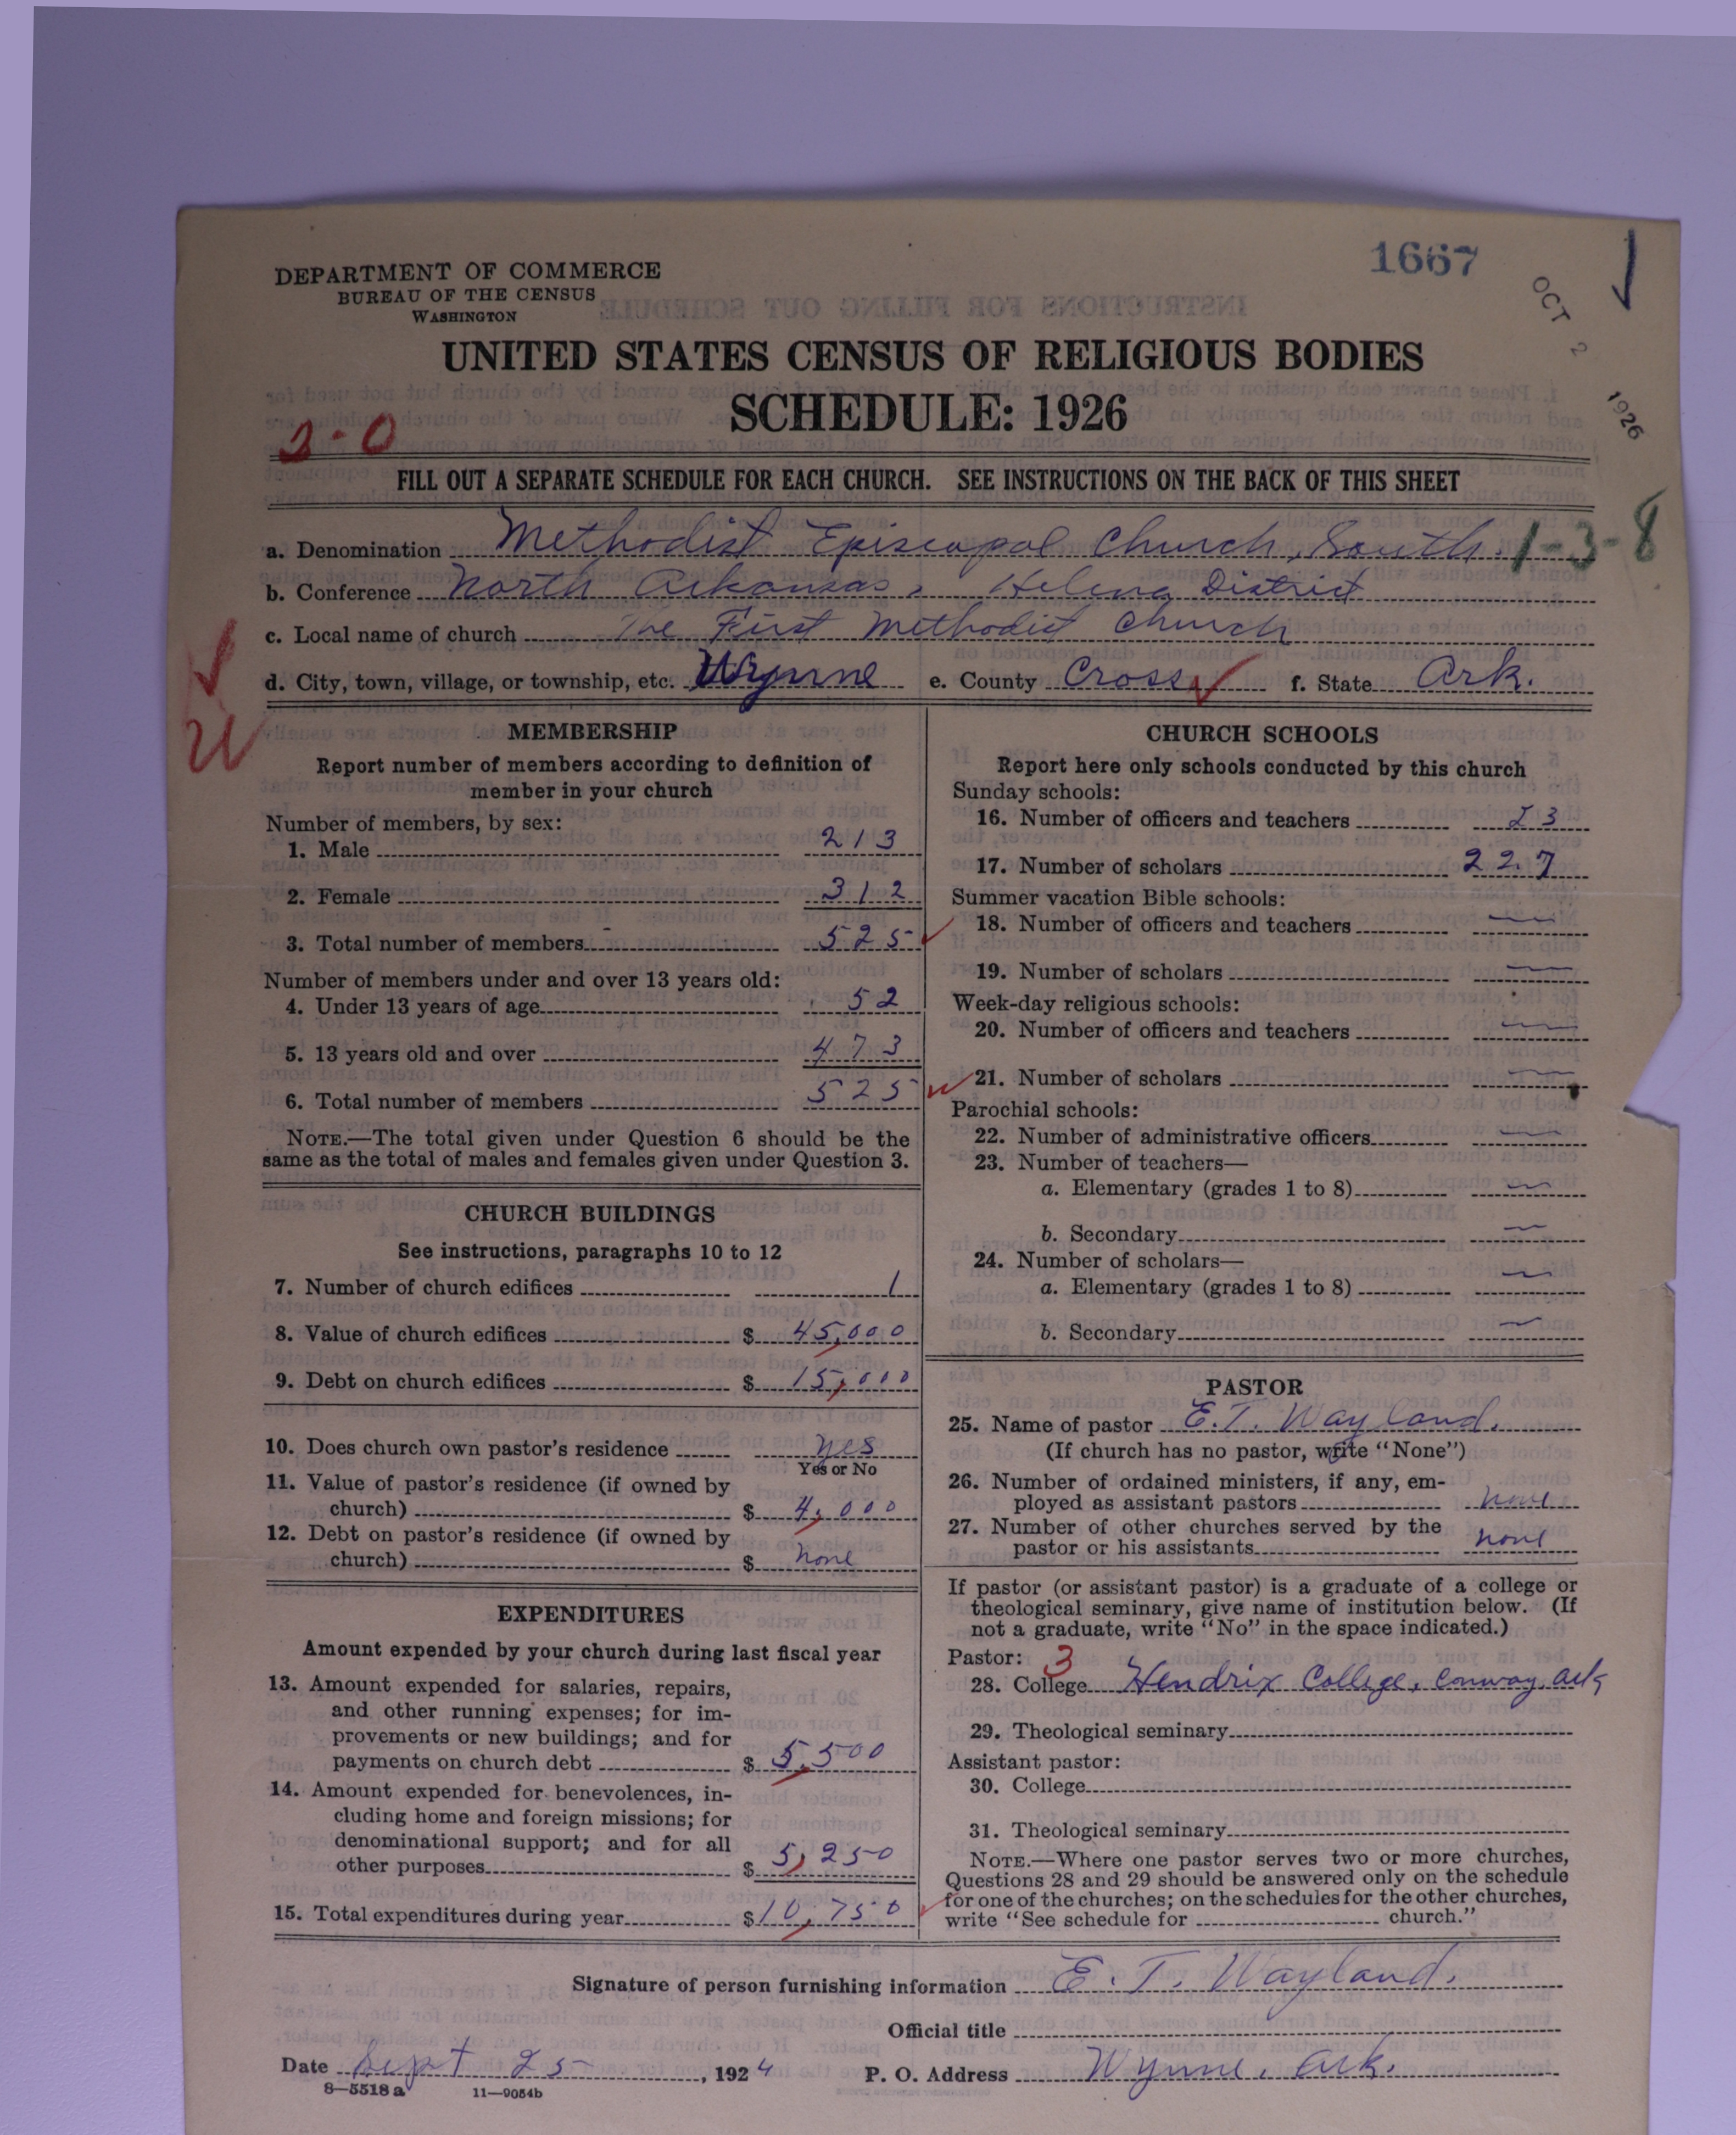 1667
OCT 2 1926
DEPARTMENT OF COMMERCE
BUREAU OF THE CENSUS
WASHINGTON
UNITED STATES CENSUS OF RELIGIOUS BODIES
SCHEDULE: 1926
3-0
FILL OUT A SEPARATE SCHEDULE FOR EACH CHURCH. SEE INSTRUCTIONS ON THE BACK OF THIS SHEET
a. Denomination Methodist Episcopal Church, South. 1-3-8
b. Conference North Arkansas, Helena District
c. Local name of church The First Methodist Church
d. City, town, village, or township, etc. Wynne e. County Cross f. State Ark.
MEMBERSHIP
Report number of members according to definition of
member in your church
Number of members, by sex:
1. Male 213
2. Female 312
3. Total number of members 525
Number of members under and over 13 years old:
4. Under 13 years of age 52
5. 13 years old and over 473
6. Total number of members 525
NOTE.—The total given under Question 6 should be the
same as the total of males and females given under Question 3.
CHURCH BUILDINGS
See instructions, paragraphs 10 to 12
7. Number of church edifices 1
8. Value of church edifices $ 45,000
9. Debt on church edifices $ 15,000
10. Does church own pastor's residence yes
Yes or No
11. Value of pastor's residence (if owned by
church) $ 4,000
12. Debt on pastor's residence (if owned by
church) $ none
EXPENDITURES
Amount expended by your church during last fiscal year
13. Amount expended for salaries, repairs,
and other running expenses; for im-
provements or new buildings; and for
payments on church debt $ 5,500
14. Amount expended for benevolences, in-
cluding home and foreign missions; for
denominational support; and for all
other purposes $ 5,250
15. Total expenditures during year $ 10,750
CHURCH SCHOOLS
Report here only schools conducted by this church
Sunday schools:
16. Number of officers and teachers 23
17. Number of scholars 227
Summer vacation Bible schools:
18. Number of officers and teachers —
19. Number of scholars —
Week-day religious schools:
20. Number of officers and teachers —
21. Number of scholars —
Parochial schools:
22. Number of administrative officers —
23. Number of teachers—
a. Elementary (grades 1 to 8) —
b. Secondary —
24. Number of scholars—
a. Elementary (grades 1 to 8) —
b. Secondary —
PASTOR
25. Name of pastor E. T. Wayland.
(If church has no pastor, write "None")
26. Number of ordained ministers, if any, em-
ployed as assistant pastors none
27. Number of other churches served by the
pastor or his assistants none
If pastor (or assistant pastor) is a graduate of a college or
theological seminary, give name of institution below. (If
not a graduate, write "No" in the space indicated.)
Pastor: 3
28. College Hendrix College, Conway, Ark,
29. Theological seminary
Assistant pastor:
30. College
31. Theological seminary
NOTE.—Where one pastor serves two or more churches,
Questions 28 and 29 should be answered only on the schedule
for one of the churches; on the schedules for the other churches,
write "See schedule for church."
Signature of person furnishing information E. T. Wayland.
Official title
Date Sept 25, 1924 P. O. Address Wynne, Ark.
8—5518a 11—9054b